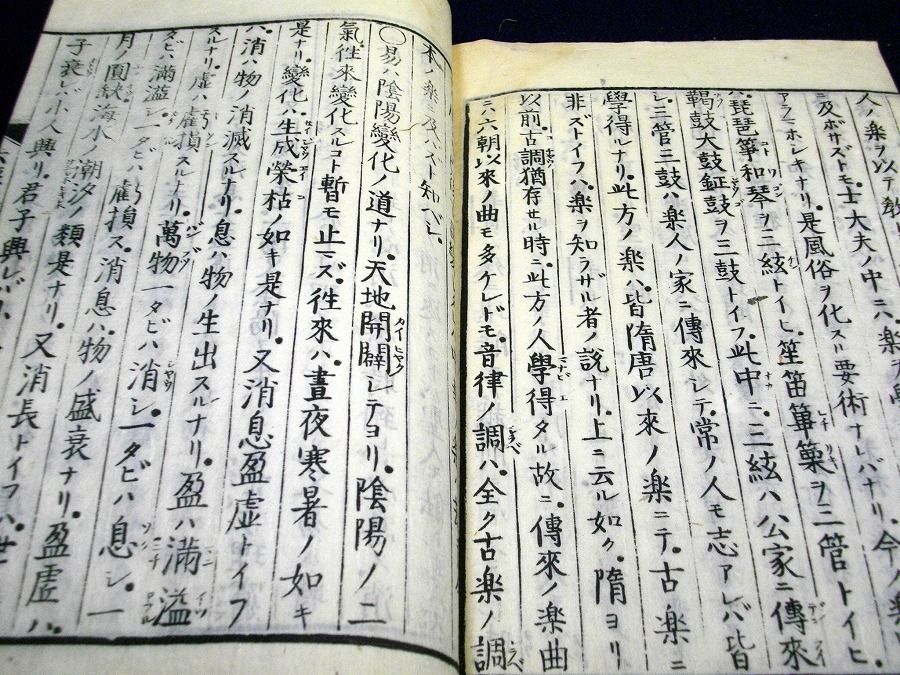 人ノ楽ヲ以テ教
ニ及ボサズトモ。士大夫ノ中ニ。楽
アラマホシキナリ。是風俗ヲ化スル要術ナレバナリ。今ノ楽
ハ。琵琶箏和琴ヲ三絃トイヒ。笙笛篳篥ヲ三管トイヒ。
鞨鼓大鼓鉦鼓ヲ三鼓トイフ。此中ニ。三絃ハ公家ニ傳來
シ。三管三鼓ハ楽人ノ家ニ傳來シテ。常ノ人モ志アレバ皆
學得ルナリ。此方ノ楽ハ。皆隋唐以來ノ楽ニテ。古楽ニ
非ズトイフハ。楽ヲ知ラザル者ノ說ナリ。上ニ云ル如ク。隋ヨリ
以前古調猶存セル時ニ。此方ノ人學得タル故ニ。傳來ノ楽曲
ニ。六朝以來ノ曲モ多ケレドモ。音律ノ調ハ。全ク古楽ノ調
本ハ楽ニ及ハスト知ベシ。
○易ハ陰陽變化ノ道ナリ。天地開闢シテヨリ。陰陽ノ二
氣。徃來變化スルコト暫モ止マズ。徃來ハ。晝夜寒暑ノ如キ
是ナリ。變化ハ。生成榮枯ノ如キ是ナリ。又消息盈虚トイフ
ハ。消ハ物ノ消滅スルナリ。息ハ物ノ生出スルナリ。盈ハ滿溢
スルナリ。虚ハ虧損スルナリ。萬物一タビハ消シ。一タビハ息シ。一
タビハ滿溢シ。一タビハ虧損ス。消息ハ。物ノ盛衰ナリ。盈虚ハ。
月ノ圓缺海水ノ潮汐ノ類是ナリ。又消長トイフハ。世
子衰レバ。小人興リ。君子興レバ。小